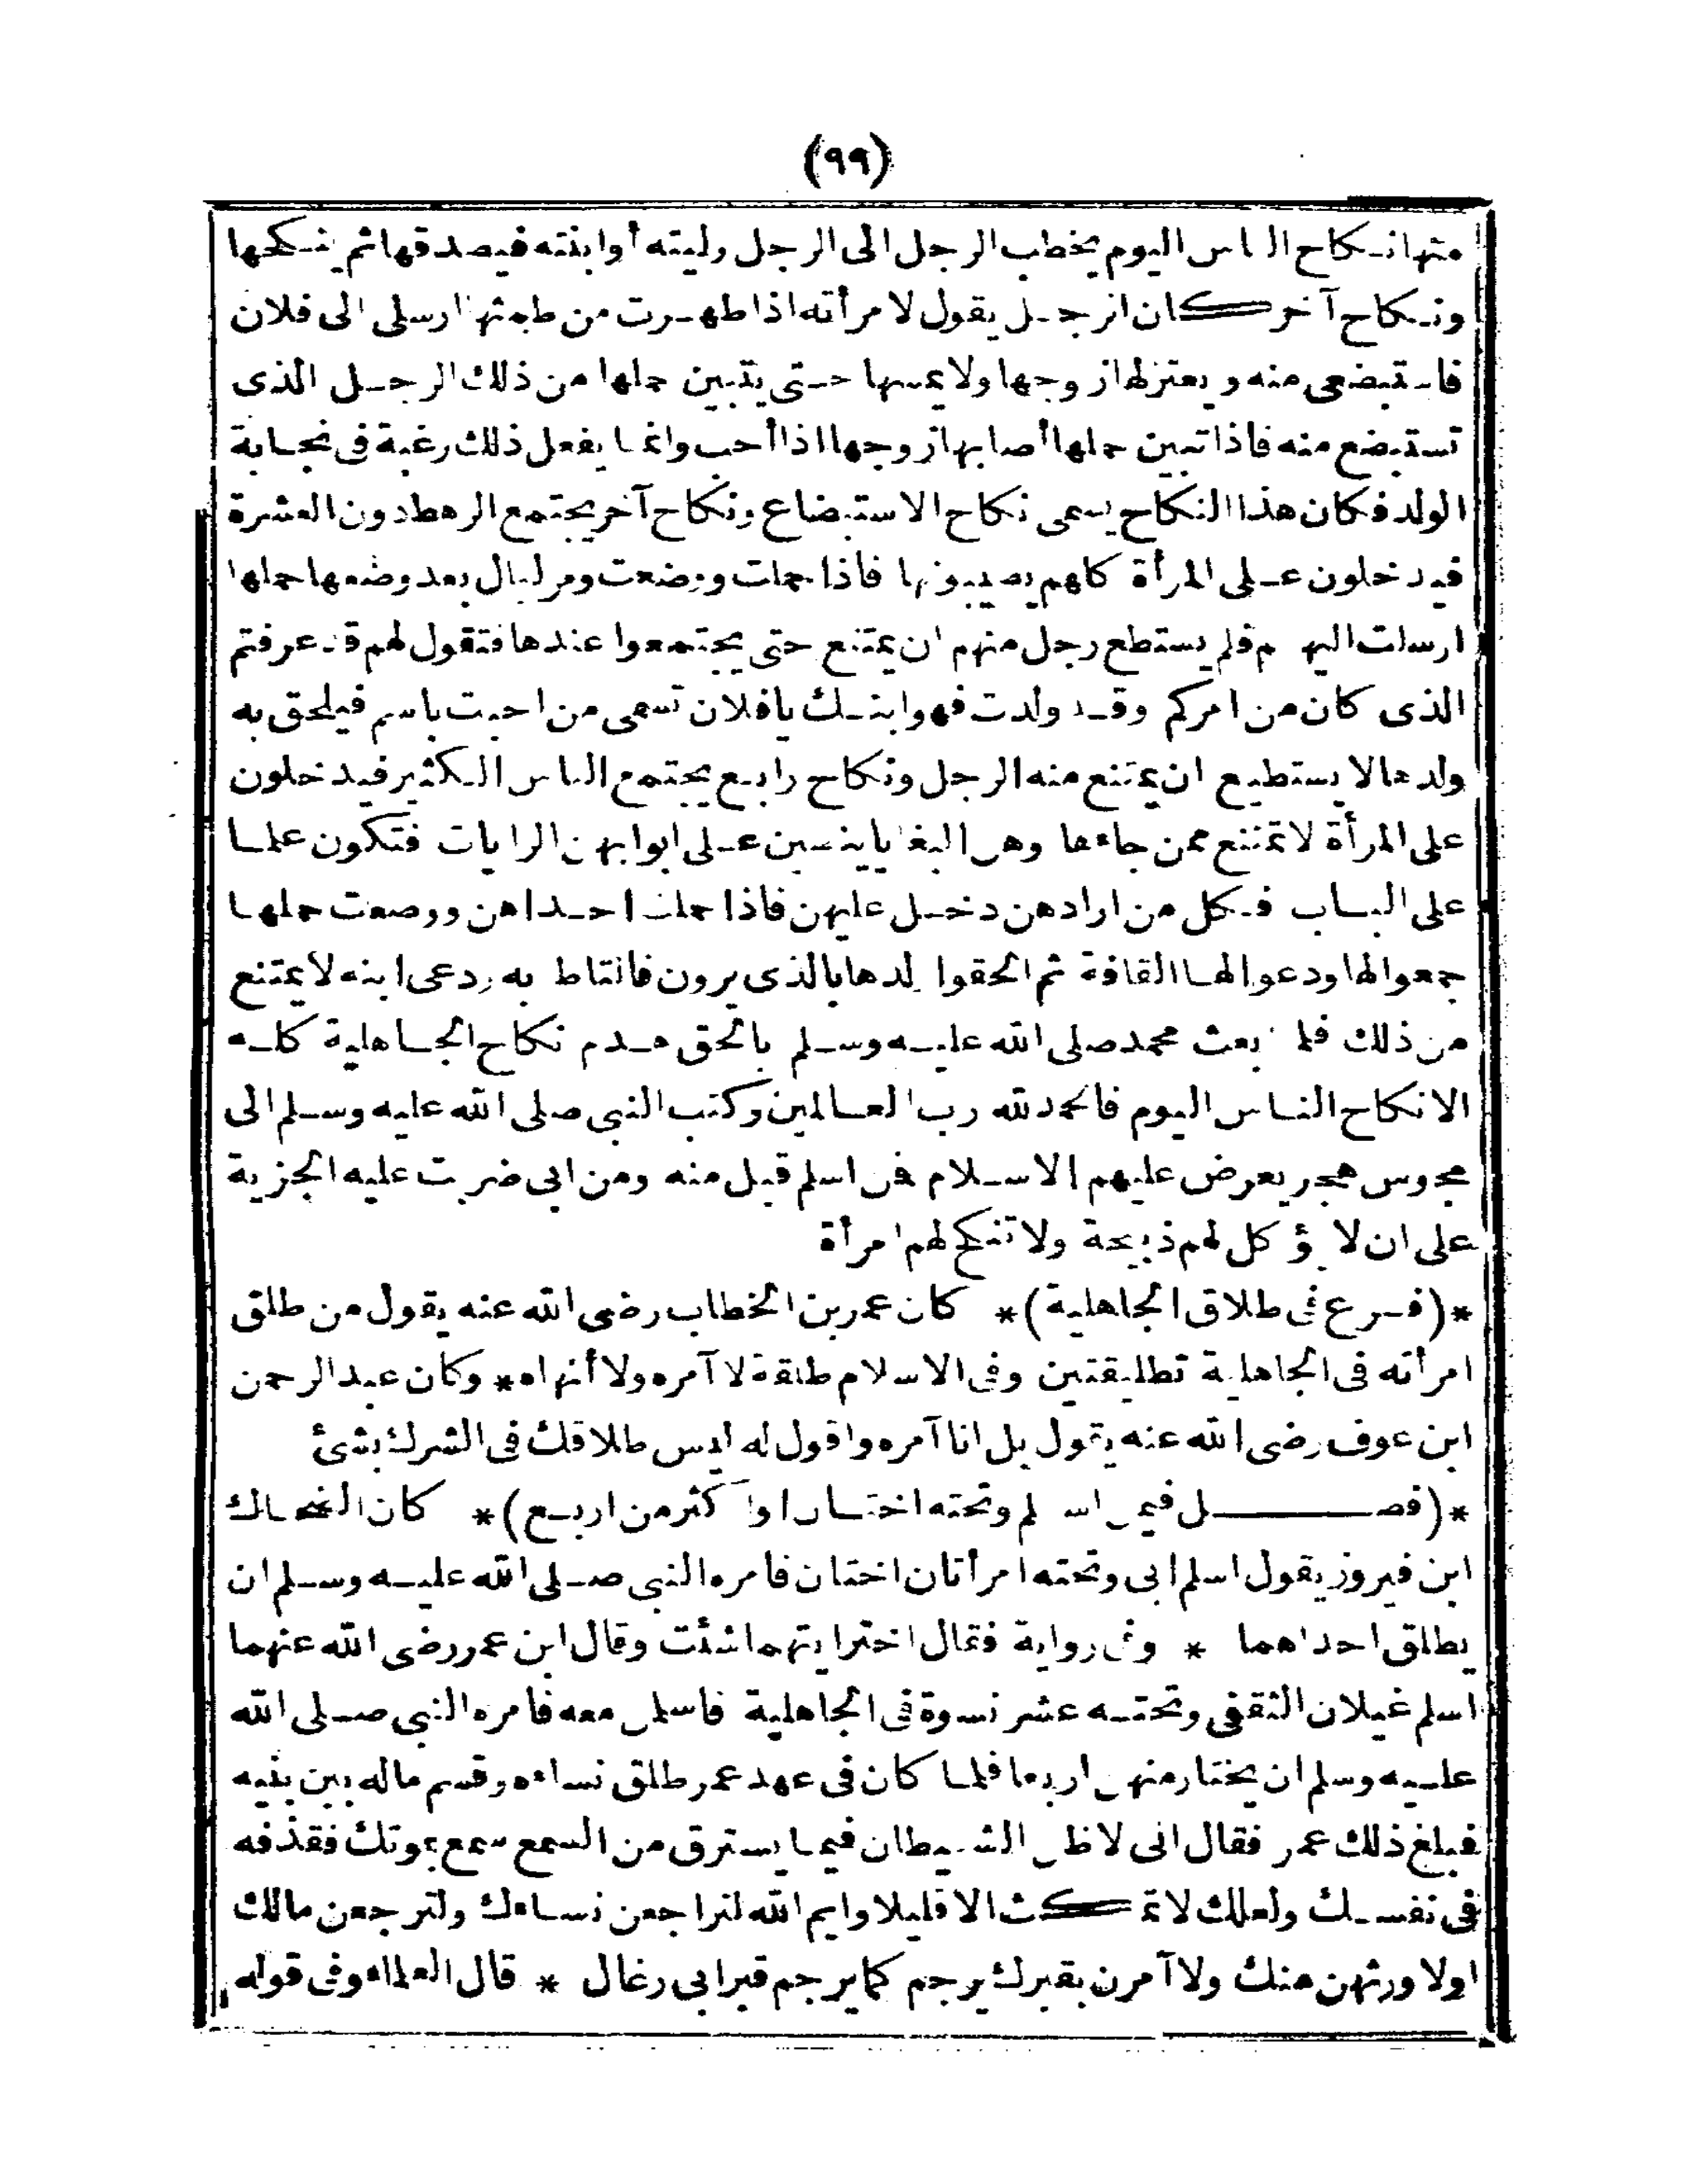 (٩٩)
منها نـكاح الناس اليوم يخطب الرجل الى الرجل وليته أوابنته فيصدقها ثم ينـكحها
ونـكاح آخر كان الرجـل يقول لامرأته اذا طهـرت من طمثها ارسلى الى فلان
فاستبضعى منه ويعتزلها زوجها ولا يمسها حـتى يتبين حملها من ذلك الرجـل الذى
تستبضع منه فاذا تبين حملها أصابها زوجها اذا أحب وانما يفعل ذلك رغبة فى نجـابة
الولد فكان هذا النكاح يسمى نكاح الاستبضاع ونكاح آخر يجتمع الرهط دون العشرة
فيدخلون عـلى المرأة كلهم يصيبونها فاذا حملت ووضعت ومر ليال بعد وضعها حملها
ارسلت اليهم فلم يستطع رجل منهم ان يمتنع حتى يجتمعوا عندها فتقول لهم قد عرفتم
الذى كان من امركم وقـد ولدت فهو ابنـك يا فلان تسمى من احبت باسم فيلحق به
ولدها لا يستطيع ان يمتنع منه الرجل ونكاح رابـع يجتمع الناس الـكثير فيدخلون
على المرأة لا تمتنع ممن جاءها وهن البغايا ينصبن عـلى ابوابهن الرايات فتكون علمـا
على البـاب فـكل من ارادهن دخـل عليهن فاذا حملت احـداهن ووضعت حملهـا
جمعوا لها ودعوا لهـا القافة ثم الحقوا ولدها بالذى يرون فالتاط به ودعى ابنه لا يمتنع
من ذلك فلما بعث محمد صلى الله عليـه وسـلم بالحق هـدم نكاح الجـاهلية كلـه
الا نكاح النـاس اليوم فالحمد لله رب العـالمين وكتب النبى صلى الله عليه وسـلم الى
مجوس هجر يعرض عليهم الاسـلام فمن اسلم قبـل منه ومن ابى ضربت عليه الجزية
على ان لا يؤكل لهم ذبيحة ولا تنكح لهم امرأة
*(فـرع فى طلاق الجاهلية)* كان عمر بن الخطاب رضى الله عنه يقول من طلق
امرأته فى الجاهلية تطليقتين وفى الاسلام طلقة لا آمره ولا أنهاه* وكان عبد الرحمن
ابن عوف رضى الله عنه يقول بل انا آمره واقول له ليس طلاقك فى الشرك بشئ
*(فصـــــــل فيمن اسلم وتحته اختـان او اكثر من اربـع)* كان الضحـاك
ابن فيروز يقول اسلم ابى وتحته امرأتان اختان فامره النبى صـلى الله عليـه وسـلم ان
يطلق احداهما * وفى رواية فقال اختر ايتهما شئت وقال ابن عمر رضى الله عنهما
اسلم غيلان الثقفى وتحتـه عشر نسوة فى الجاهلية فاسلمن معه فامره النبى صـلى الله
علـيه وسلم ان يختار منهن اربعا فلمـا كان فى عهد عمر طلق نساءه وقسم ماله بين بنيه
فبلغ ذلك عمر فقال انى لاظن الشـيطان فيمـا يسترق من السمع سمع بموتك فقذفه
فى نفسـك ولعلك لا تمكث الا قليلا وايم الله لتراجعن نسـاءك ولترجعن مالك
اولا ورثهن منك ولا آمرن بقبرك يرجم كما يرجم قبر ابى رغال * قال العلماء وفى قوله